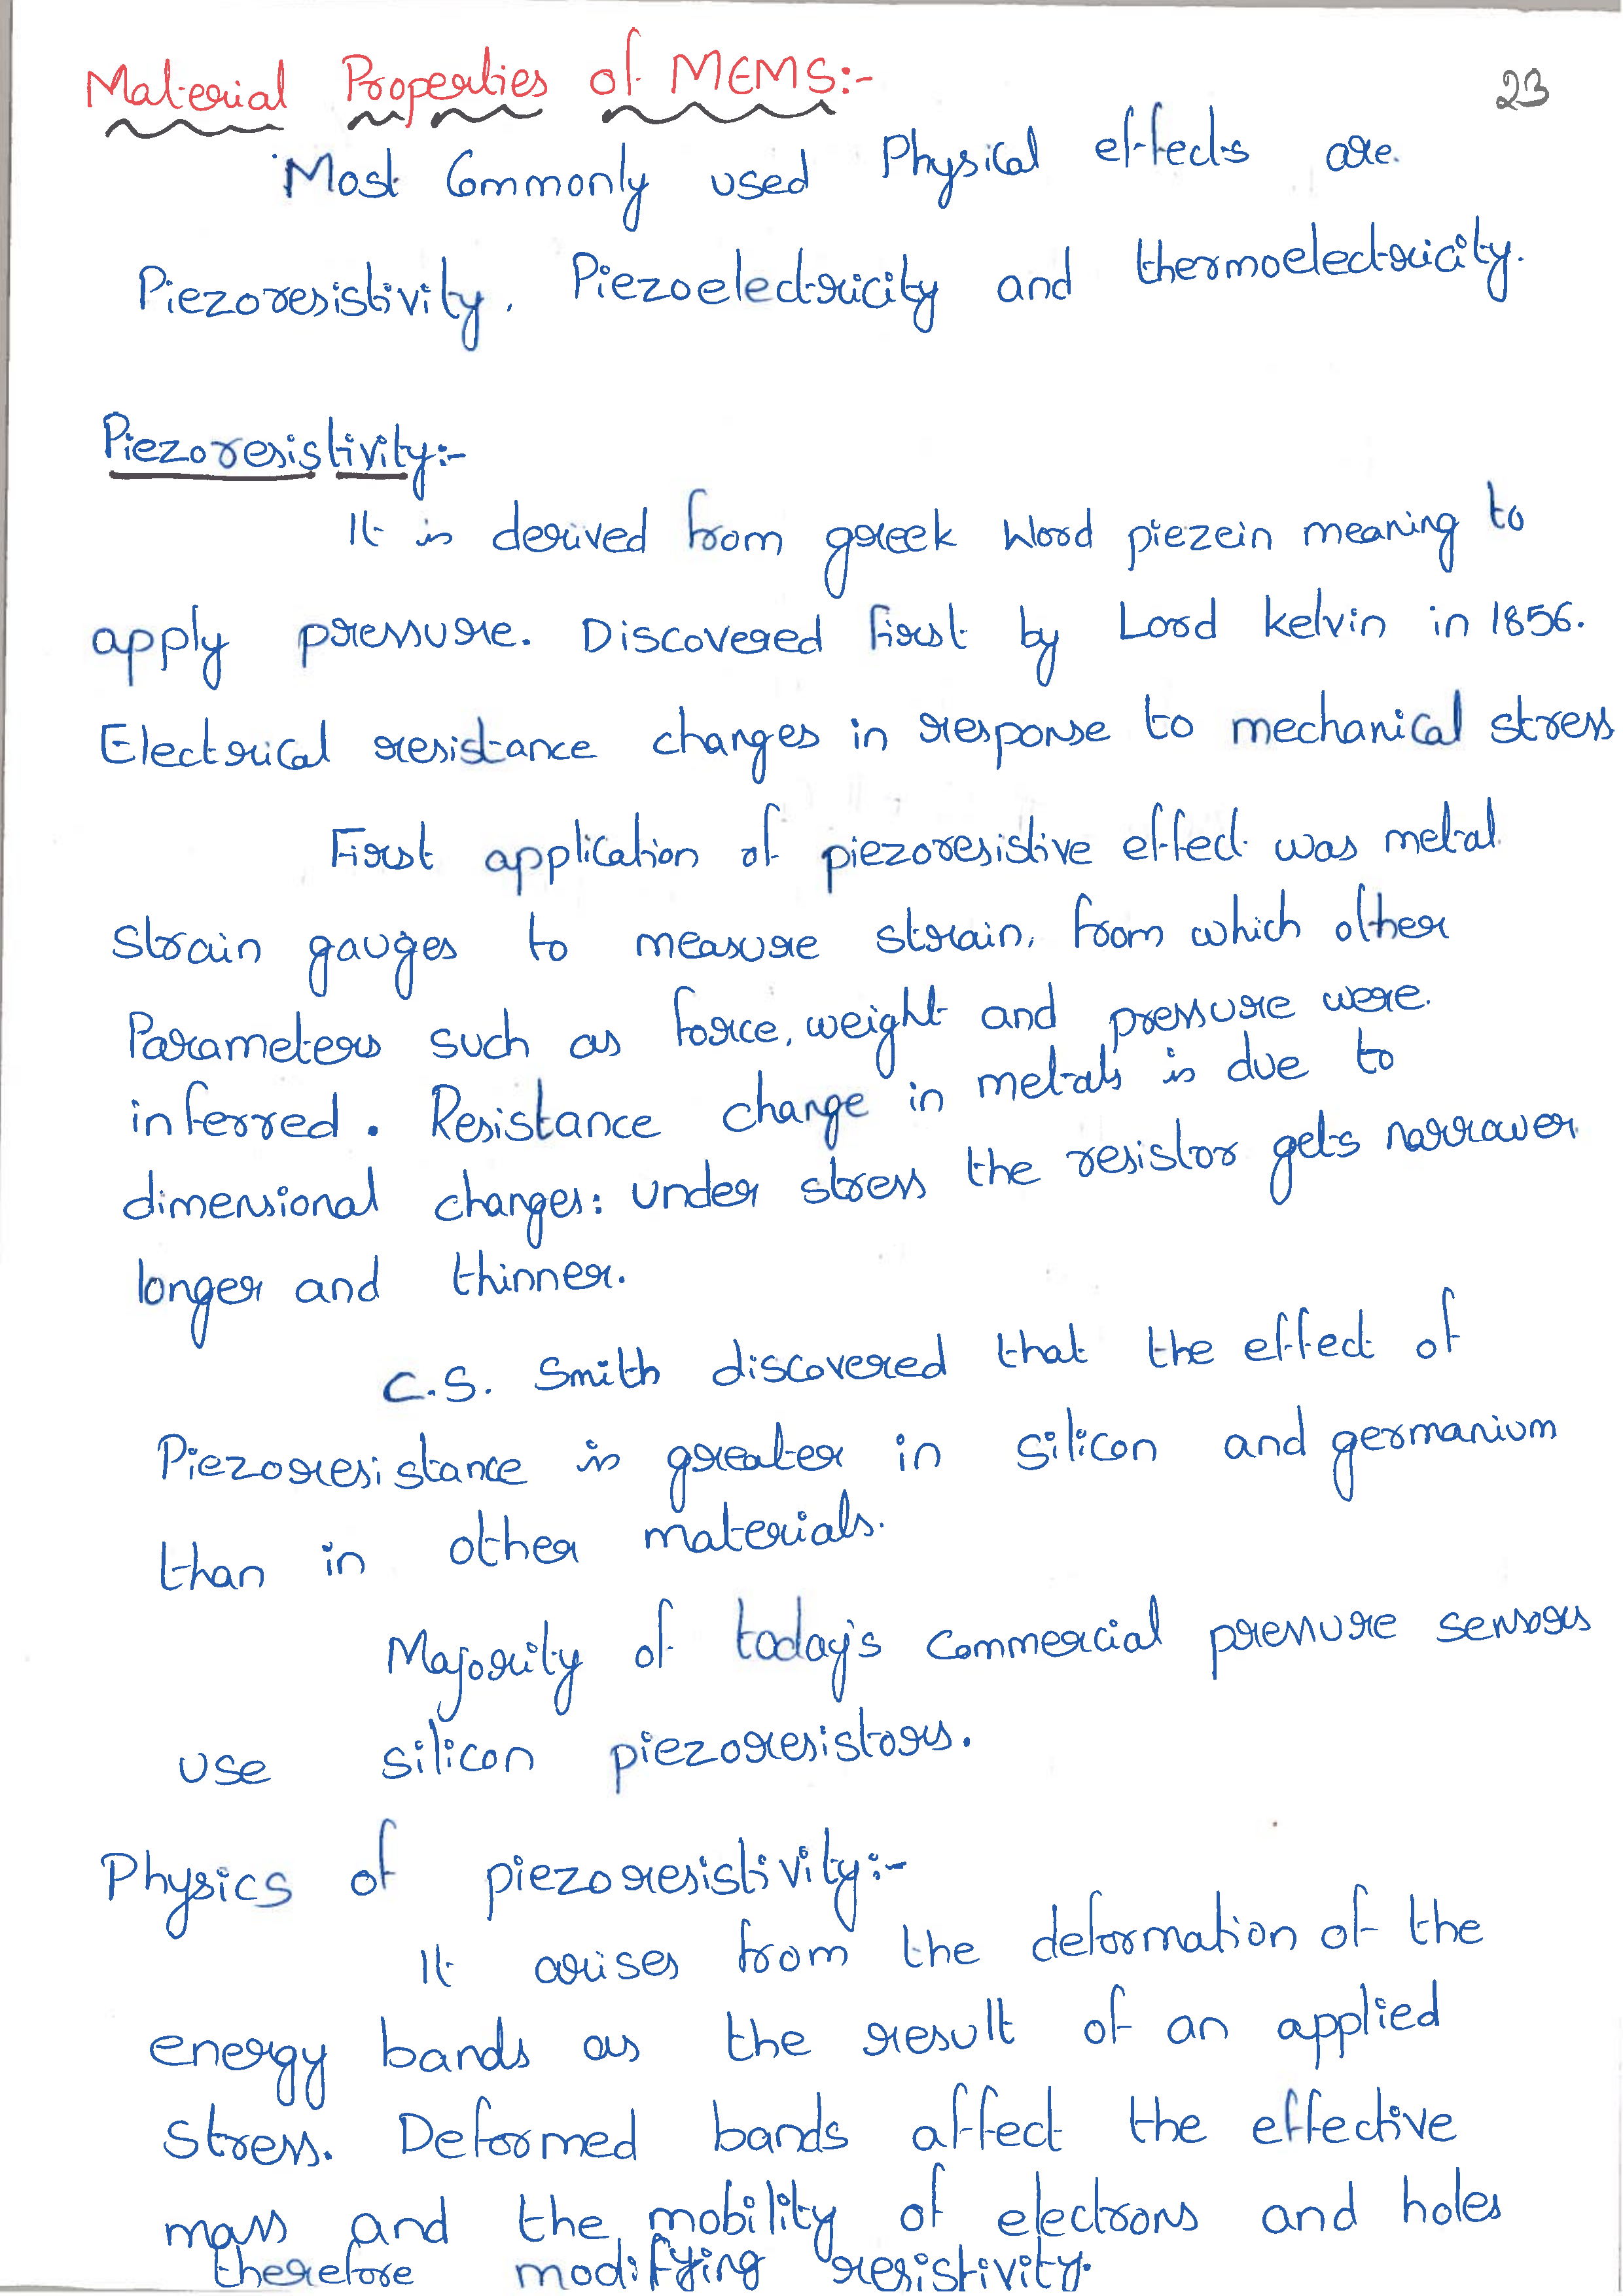 Material Properties of MEMS:-
23
Most Commonly used Physical effects are
Piezoresistivity, Piezoelectricity and thermoelectricity.
Piezoresistivity:-
It is derived from greek word piezein meaning to
apply pressure. Discovered first by Lord kelvin in 1856.
Electrical resistance changes in response to mechanical stress
First application of piezoresistive effect was metal
strain gauges to measure strain, from which other
Parameters such as force, weight and pressure were
inferred. Resistance change in metals is due to
dimensional changes: under stress the resistor gets narrower
longer and thinner.
C.S. Smith discovered that the effect of
Piezoresistance is greater in silicon and germanium
than in other materials.
Majority of today's commercial pressure sensors
use silicon piezoresistors.
Physics of piezoresistivity:-
It arises from the deformation of the
energy bands as the result of an applied
stress. Deformed bands affect the effective
mass and the mobility of electrons and holes
therefore modifying resistivity.